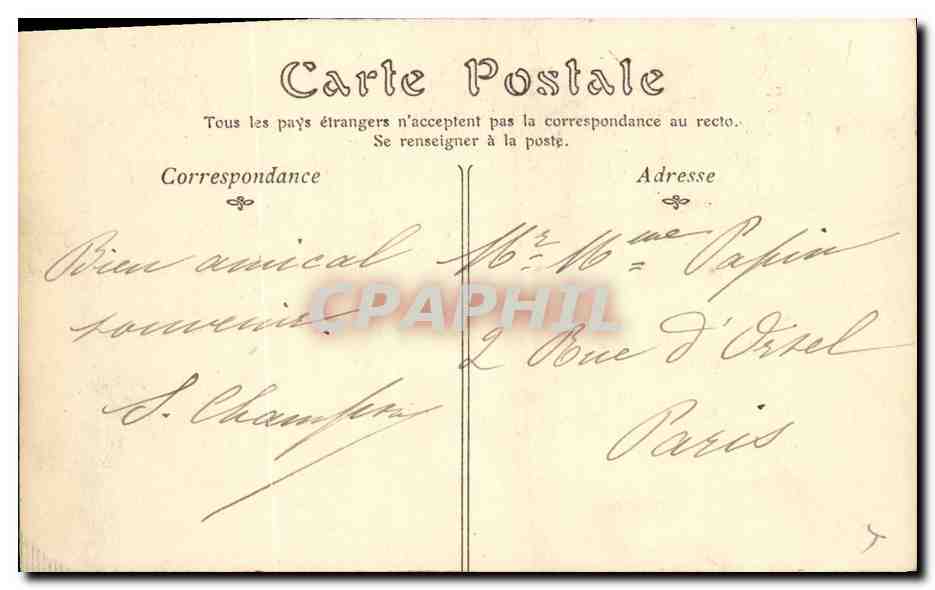 Carte Postale
Tous les pays étrangers n'acceptent pas la correspondance au recto.
Se renseigner à la poste.
Correspondance
Adresse
Bien amical
souvenir.
S.
Mr. Mme Papin
2 Rue d'Orsel
Paris
CPAPHIL